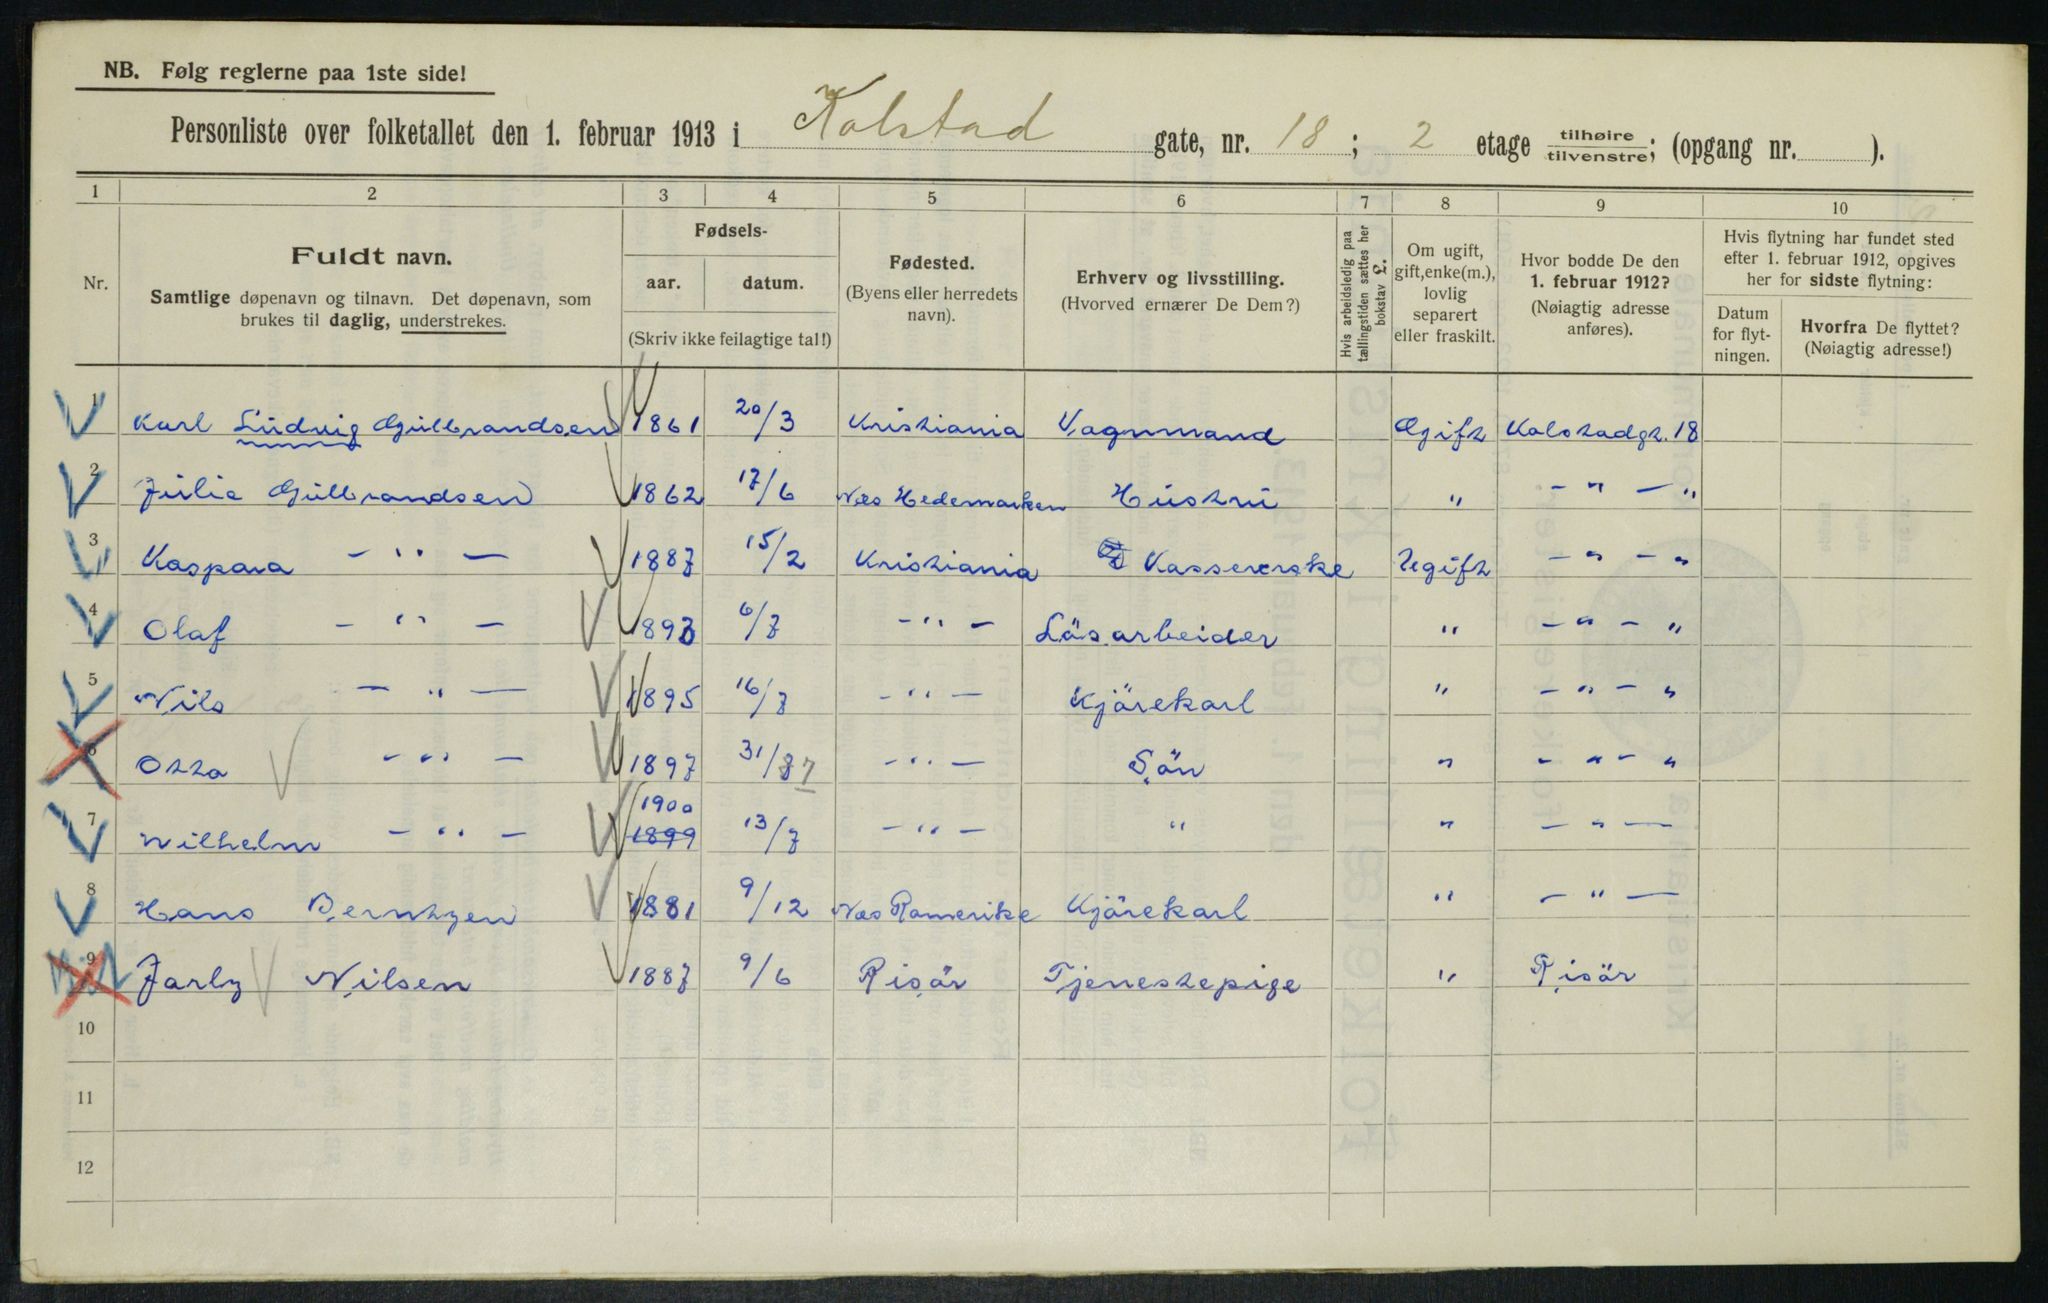 NB. Følg reglerne paa 1ste side!
Personliste over folketallet den 1. februar 1913 i Kolstad gate, nr. 18 ; 2 etage tilhøire tilvenstre; (opgang nr. ).
1 2 3 4 5 6 7 8 9 10
Nr.
Fuldt navn.
Samtlige døpenavn og tilnavn. Det døpenavn, som
brukes til daglig, understrekes.
Fødsels-
aar. datum.
(Skriv ikke feilagtige tal!)
Fødested.
(Byens eller herredets
navn).
Erhverv og livsstilling.
(Hvorved ernærer De Dem?)
Hvis arbeidsledig paa
tællingstiden sættes her
bokstav L.
Om ugift,
gift, enke(m.),
lovlig
separert
eller fraskilt.
Hvor bodde De den
1. februar 1912?
(Nøiagtig adresse
anføres).
Hvis flytning har fundet sted
efter 1. februar 1912, opgives
her for sidste flytning:
Datum
for flyt-
ningen.
Hvorfra De flyttet?
(Nøiagtig adresse!)
1 Karl Ludvig Gulbrandsen 1861 20/3 Kristiania Vognmand Gift Kolstadgt. 18
2 Julie Gulbrandsen 1862 17/6 Næs Hedemarken Hustru " - " - "
3 Kaspara - " - 1887 15/2 Kristiania Kassererske Ugift - " - "
4 Olaf - " - 1893 6/7 - " - Løsarbeider " - " - "
5 Nils - " - 1895 16/7 - " - Kjørekarl " - " - "
6 Otto - " - 1897 31/7 - " - Søn " - " - "
7 Wilhelm - " - 1899 1900 13/7 - " - " " - " -
8 Hans Berntzen 1881 9/12 Næs Romerike Kjørekarl " - " -
9 Nilsen 1887 9/6 Risør Tjenestepige " Risør
10
11
12